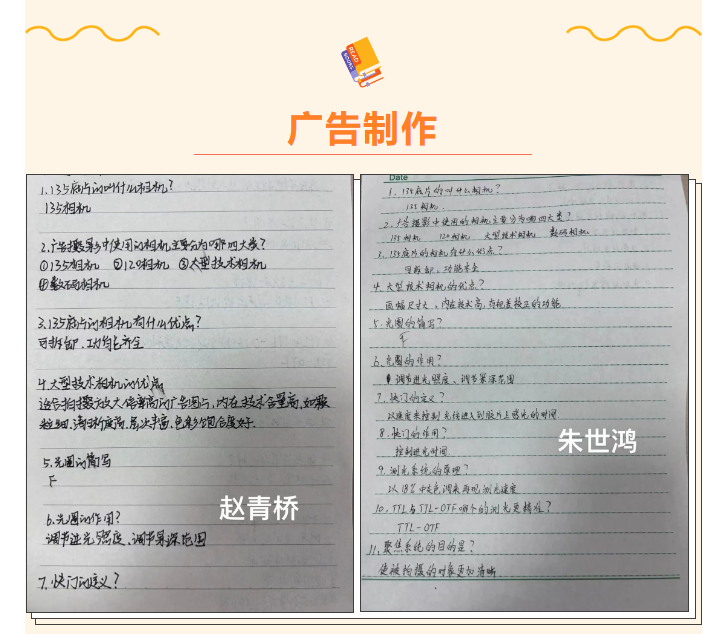 READ
BOOKS
广告制作
1.135底片的叫什么相机?
135相机
2.广告摄影中使用的相机主要分为哪四大类?
①135相机 ②120相机 ③大型技术相机
④数码相机
3.135底片的相机有什么优点?
可拆卸.功能齐全
4.大型技术相机的优点
适合拍摄放大倍率高的广告图片,内在技术含量高,如颗
粒细.清晰度高.层次丰富.色彩饱合度好.
5.光圈的简写
F
6.光圈的作用?
调节进光强度、调节景深范围
7.快门的定义?
赵青桥
Date
1.135底片的叫什么相机?
135相机.
2.广告摄影中使用的相机主要分为哪四大类?
135相机 120相机 大型技术相机 数码相机
3.135底片的相机有什么优点?
可拆卸.功能齐全
4.大型技术相机的优点?
画幅尺寸大、内在技术高,有视差校正的功能
5.光圈的简写?
F
6.光圈的作用?
调节进光照度、调节景深范围
7.快门的定义?
以速度来控制光线进入到胶片上感光的时间.
8.快门的作用?
控制进光时间
9.测光系统的原理?
以18%中灰色调来再现测光速度
10.TTL与TTL-OTF哪个的测光更精准?
TTL-OTF
11.聚焦系统的目的是?
使被拍摄的对象更加清晰
朱世鸿